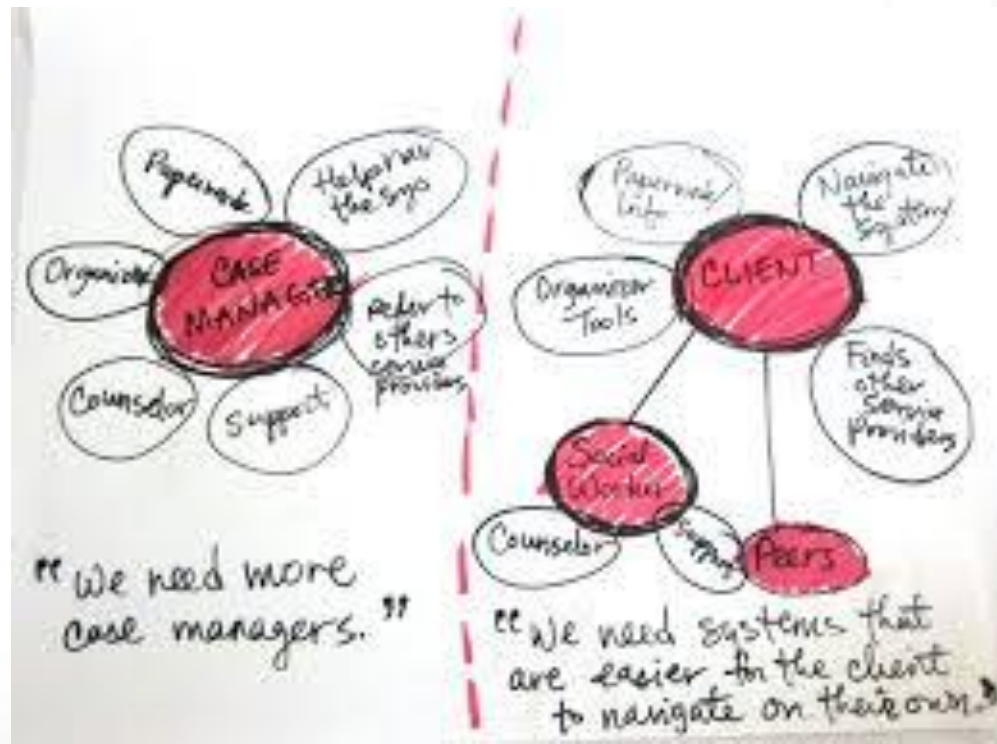 Paperwork
Help nav
the sys
Organizer
CASE
MANAGER
Refer to
others
service
providers
Counselor
Support
"We need more
case managers."
Paperwork/
Info
Navigate
the
System
Organizer
Tools
CLIENT
Finds
other
Service
Providers
Social
Worker
Counselor
Support
Peers
"We need systems that
are easier for the client
to navigate on their own."